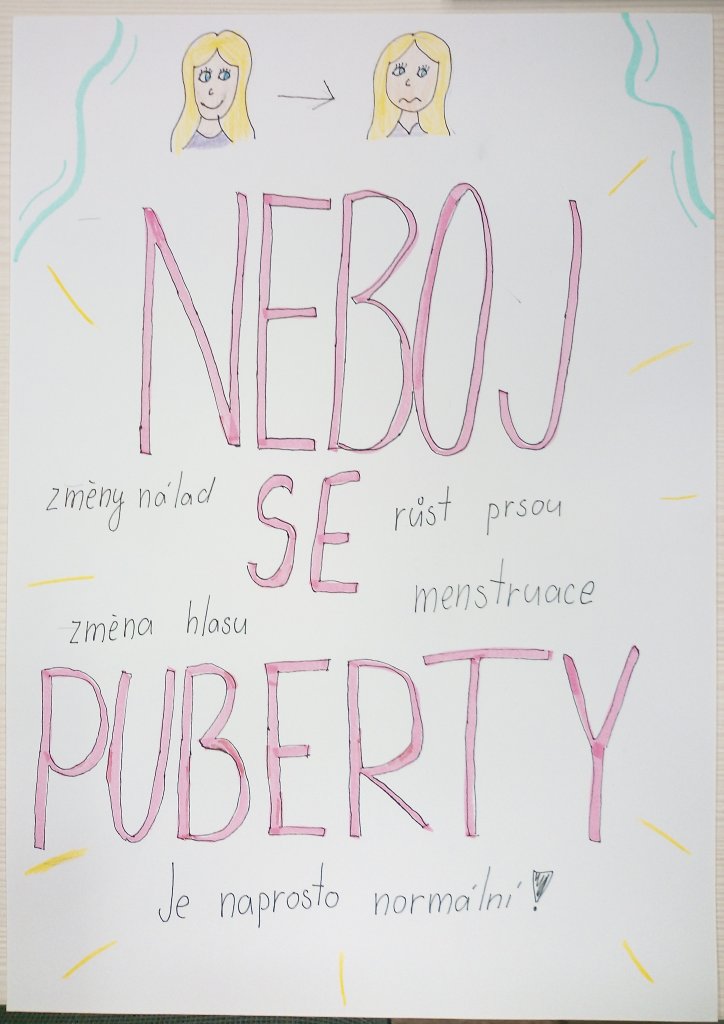 NEBOJ
SE
změny nálad
růst prsou
menstruace
změna hlasu
PUBERTY
Je naprosto normální!